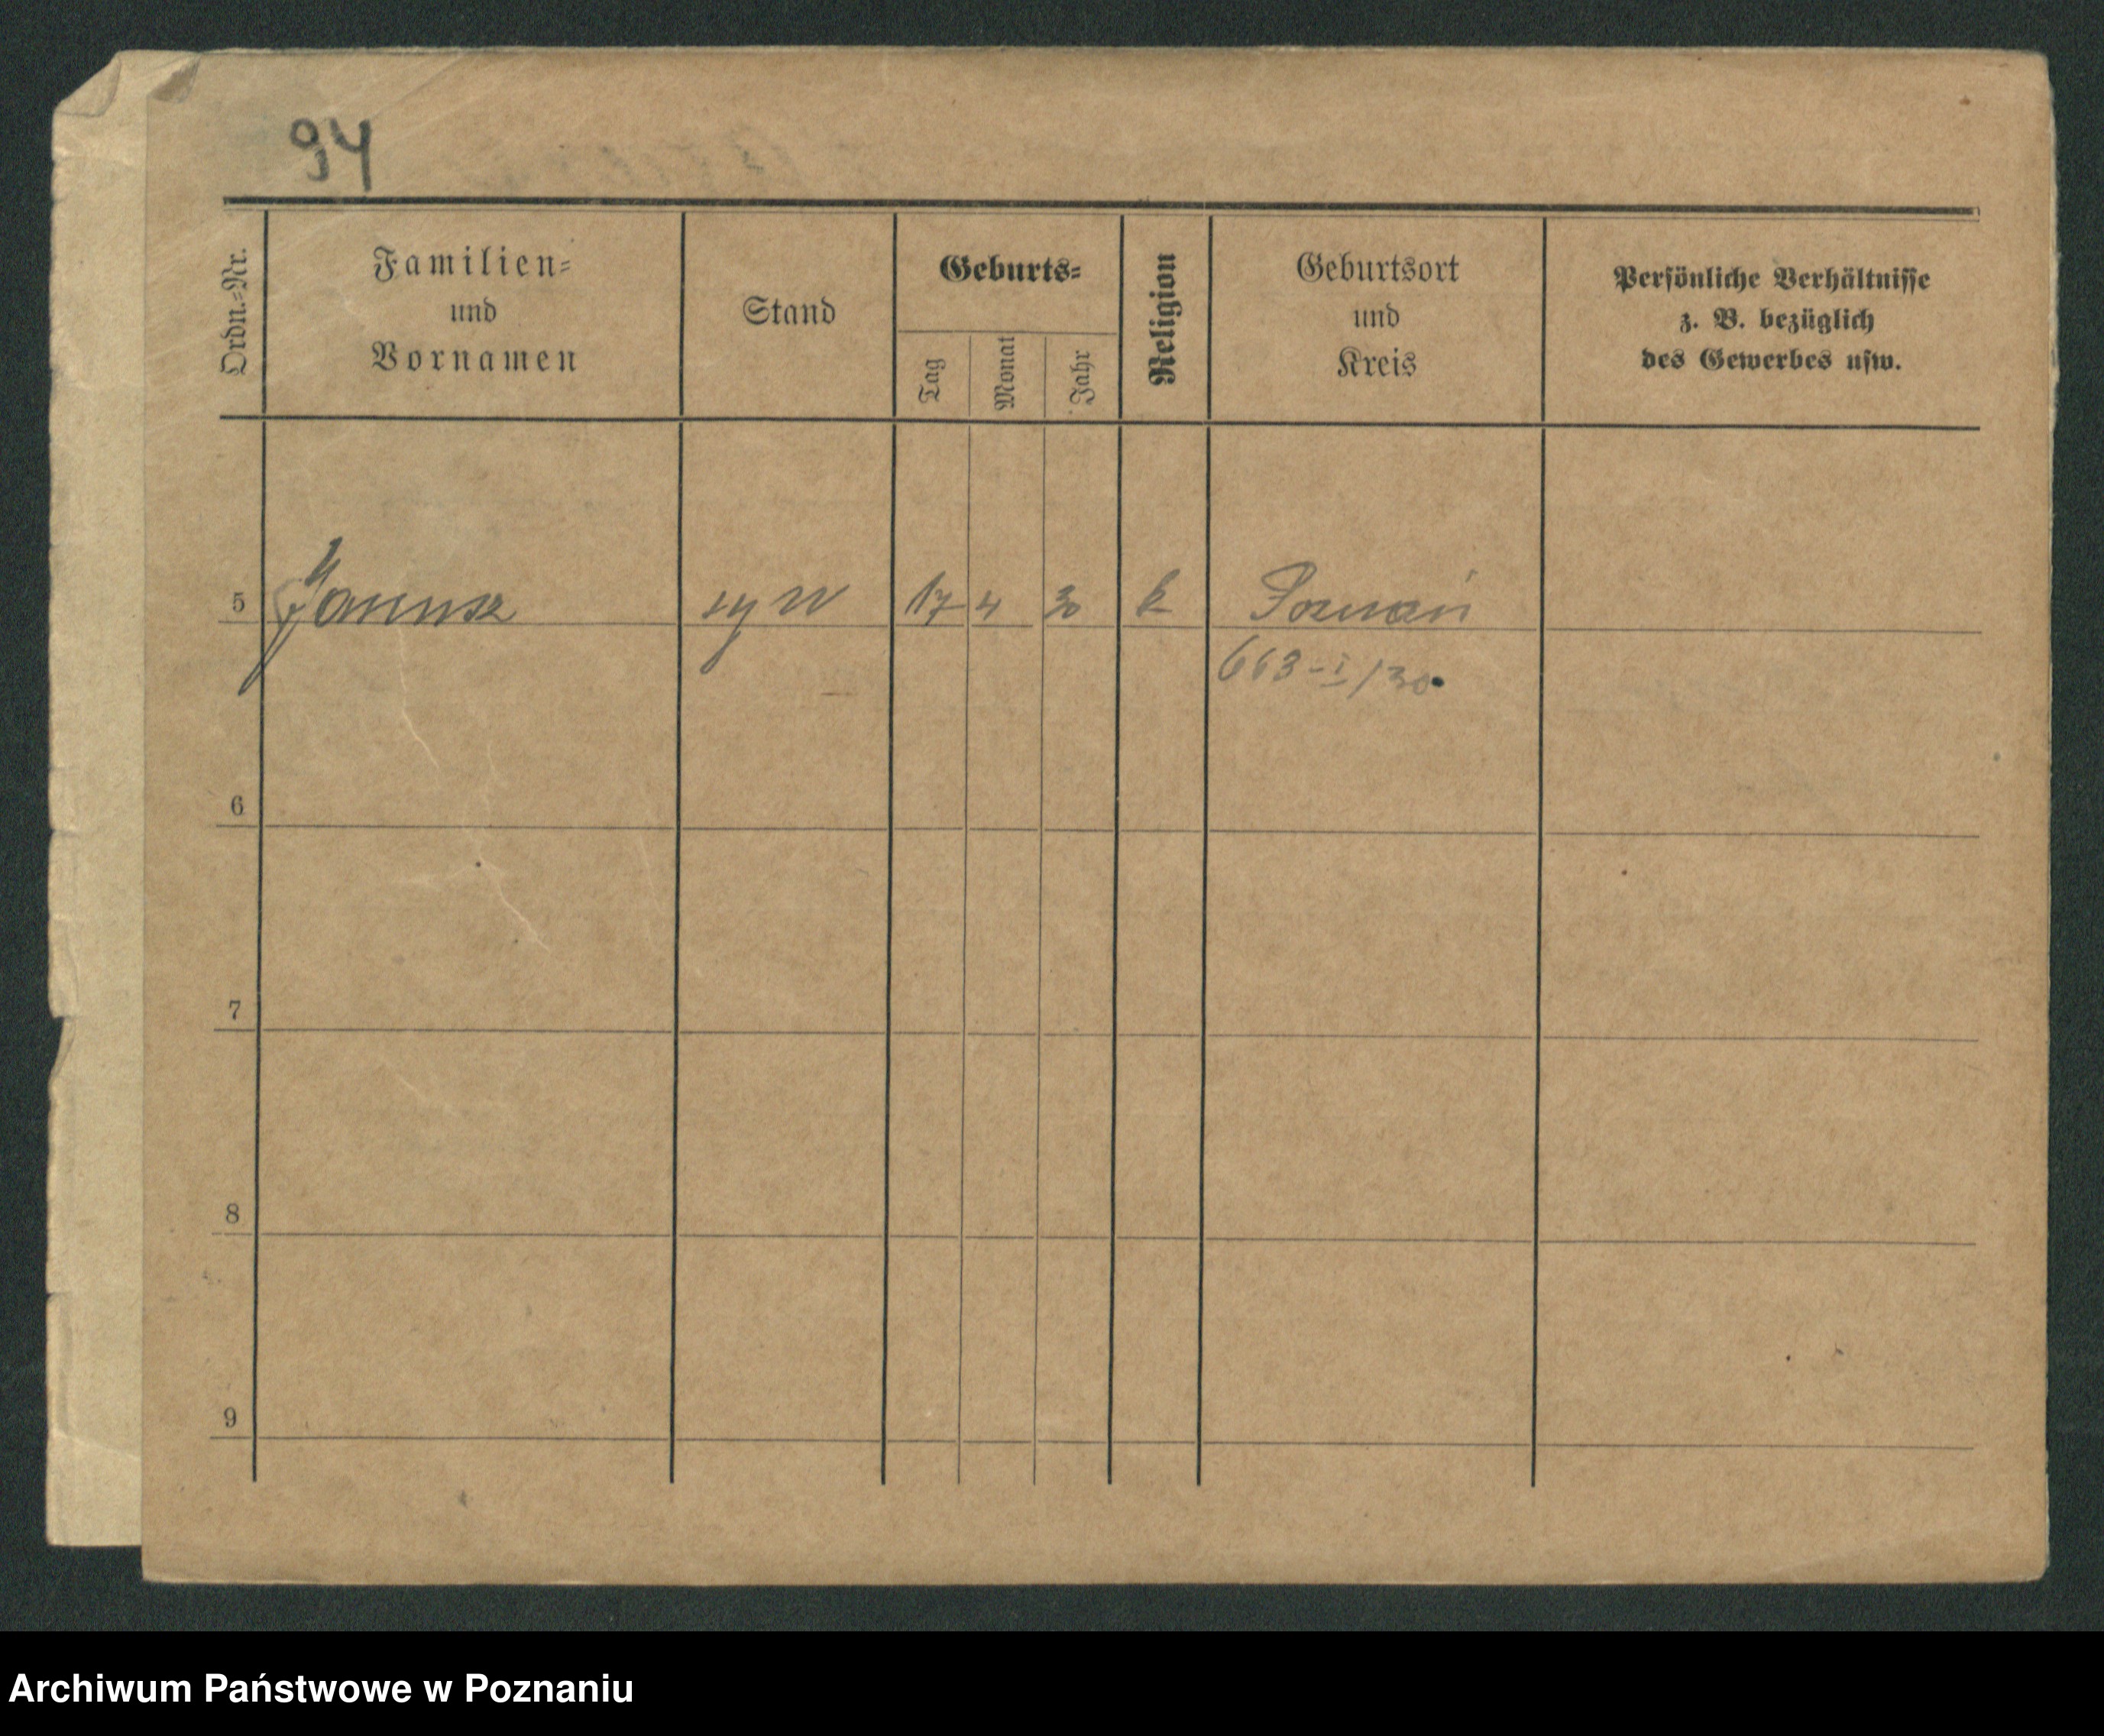 94
Ordn.-Nr.
Familien-
und
Vornamen
Stand
Geburts-
Tag
Monat
Jahr
Religion
Geburtsort
und
Kreis
Persönliche Verhältnisse
z. B. bezüglich
des Gewerbes usw.
5 Janusz syn 17 4 30 k Poznań
663-I/30
6
7
8
9
Archiwum Państwowe w Poznaniu